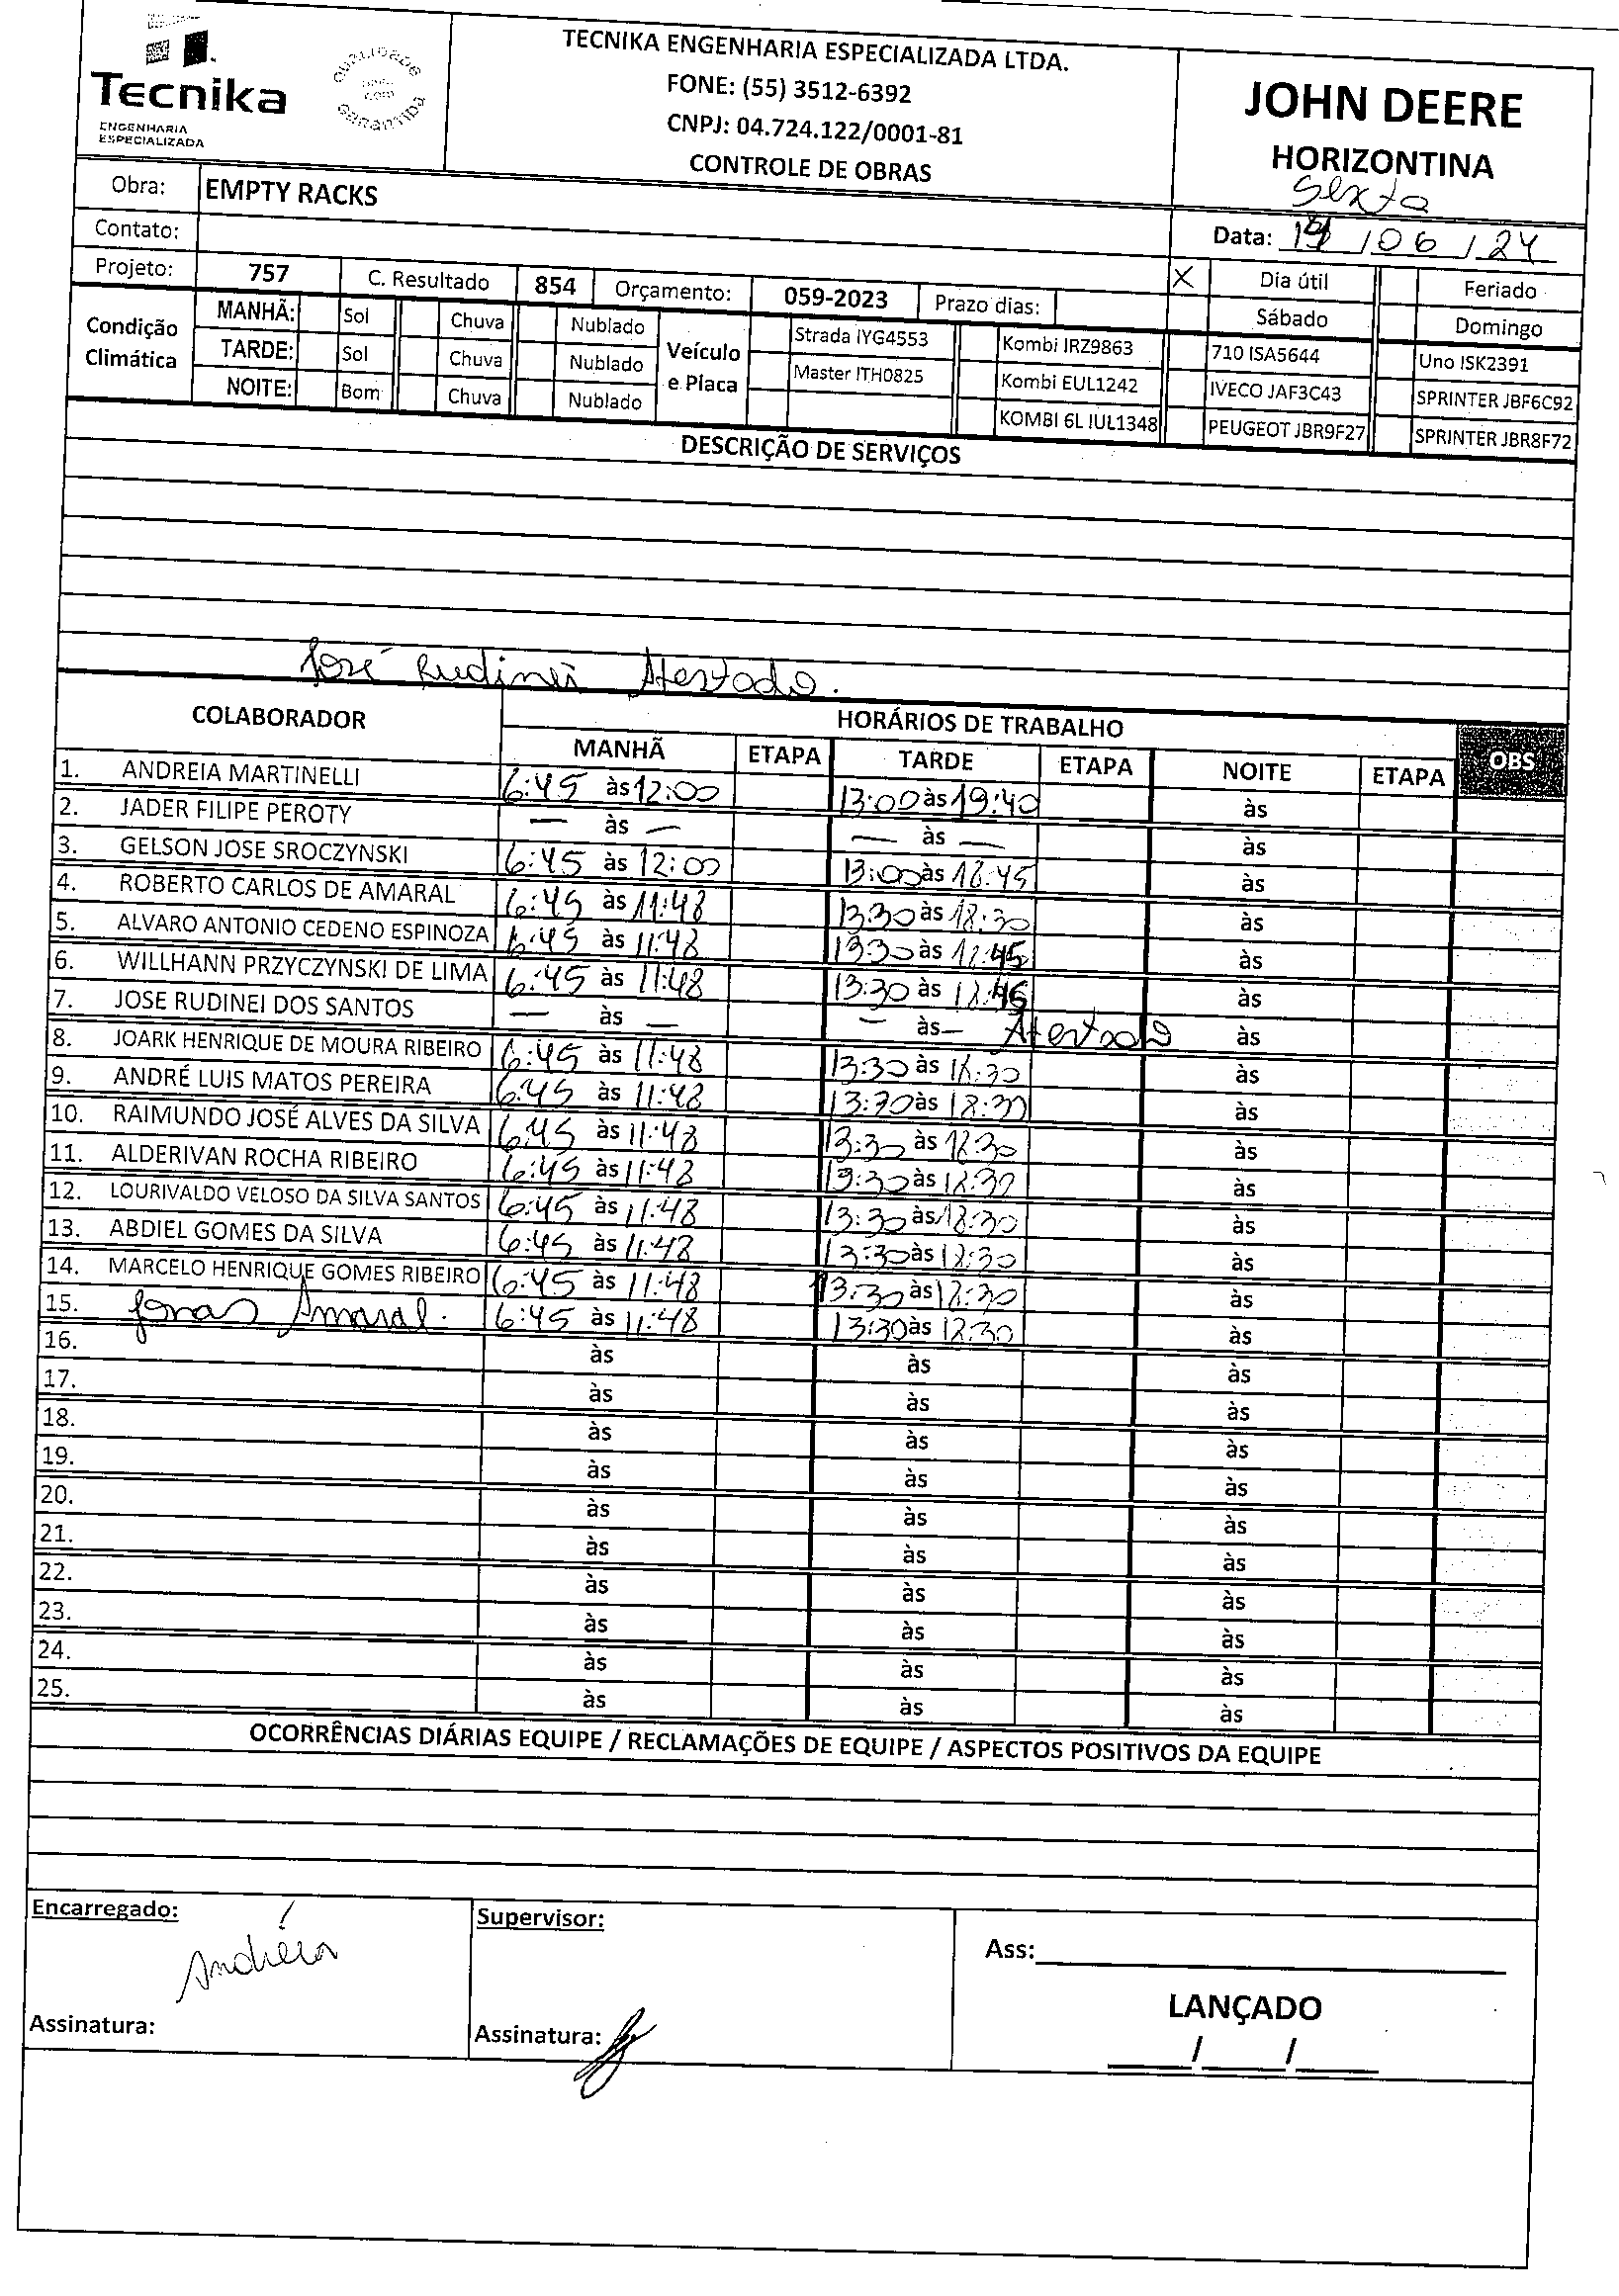 Tecnika
ENGENHARIA
ESPECIALIZADA
QUALIDADE
COM
GARANTIDA
TECNIKA ENGENHARIA ESPECIALIZADA LTDA.
FONE: (55) 3512-6392
CNPJ: 04.724.122/0001-81
CONTROLE DE OBRAS
JOHN DEERE
HORIZONTINA
Sexta
Obra: EMPTY RACKS
Contato:
Data: /06/24
Projeto: 757 C. Resultado 854 Orçamento: 059-2023 Prazo dias: X Dia útil Feriado
Sábado Domingo
Condição Climática
MANHÃ: Sol Chuva Nublado
TARDE: Sol Chuva Nublado
NOITE: Bom Chuva Nublado
Veículo e Placa
Strada IYG4553 Kombi IRZ9863 710 ISA5644 Uno ISK2391
Master ITH0825 Kombi EUL1242 IVECO JAF3C43 SPRINTER JBF6C92
KOMBI 6L IUL1348 PEUGEOT JBR9F27 SPRINTER JBR8F72
DESCRIÇÃO DE SERVIÇOS
José Rudinei Atestado.
COLABORADOR HORÁRIOS DE TRABALHO OBS
MANHÃ ETAPA TARDE ETAPA NOITE ETAPA
1. ANDREIA MARTINELLI 6:45 às 12:00 13:00 às 19:40 às
2. JADER FILIPE PEROTY — às — — às — às
3. GELSON JOSE SROCZYNSKI 6:45 às 12:00 13:00 às 18:45 às
4. ROBERTO CARLOS DE AMARAL 6:45 às 11:48 13:30 às 18:30 às
5. ALVARO ANTONIO CEDENO ESPINOZA 6:45 às 11:48 13:30 às 18:45 às
6. WILLHANN PRZYCZYNSKI DE LIMA 6:45 às 11:48 13:30 às 18:45 às
7. JOSE RUDINEI DOS SANTOS — às — — às — Atestado às
8. JOARK HENRIQUE DE MOURA RIBEIRO 6:45 às 11:48 13:30 às 18:30 às
9. ANDRÉ LUIS MATOS PEREIRA 6:45 às 11:48 13:30 às 18:30 às
10. RAIMUNDO JOSÉ ALVES DA SILVA 6:45 às 11:48 13:30 às 18:30 às
11. ALDERIVAN ROCHA RIBEIRO 6:45 às 11:48 13:30 às 18:30 às
12. LOURIVALDO VELOSO DA SILVA SANTOS 6:45 às 11:48 13:30 às 18:30 às
13. ABDIEL GOMES DA SILVA 6:45 às 11:48 13:30 às 18:30 às
14. MARCELO HENRIQUE GOMES RIBEIRO 6:45 às 11:48 13:30 às 18:30 às
15. Jonas Amaral. 6:45 às 11:48 13:30 às 18:30 às
16. às às às
17. às às às
18. às às às
19. às às às
20. às às às
21. às às às
22. às às às
23. às às às
24. às às às
25. às às às
OCORRÊNCIAS DIÁRIAS EQUIPE / RECLAMAÇÕES DE EQUIPE / ASPECTOS POSITIVOS DA EQUIPE
Encarregado: Supervisor:
Andréia
Ass:
LANÇADO
Assinatura: Assinatura:
/ /